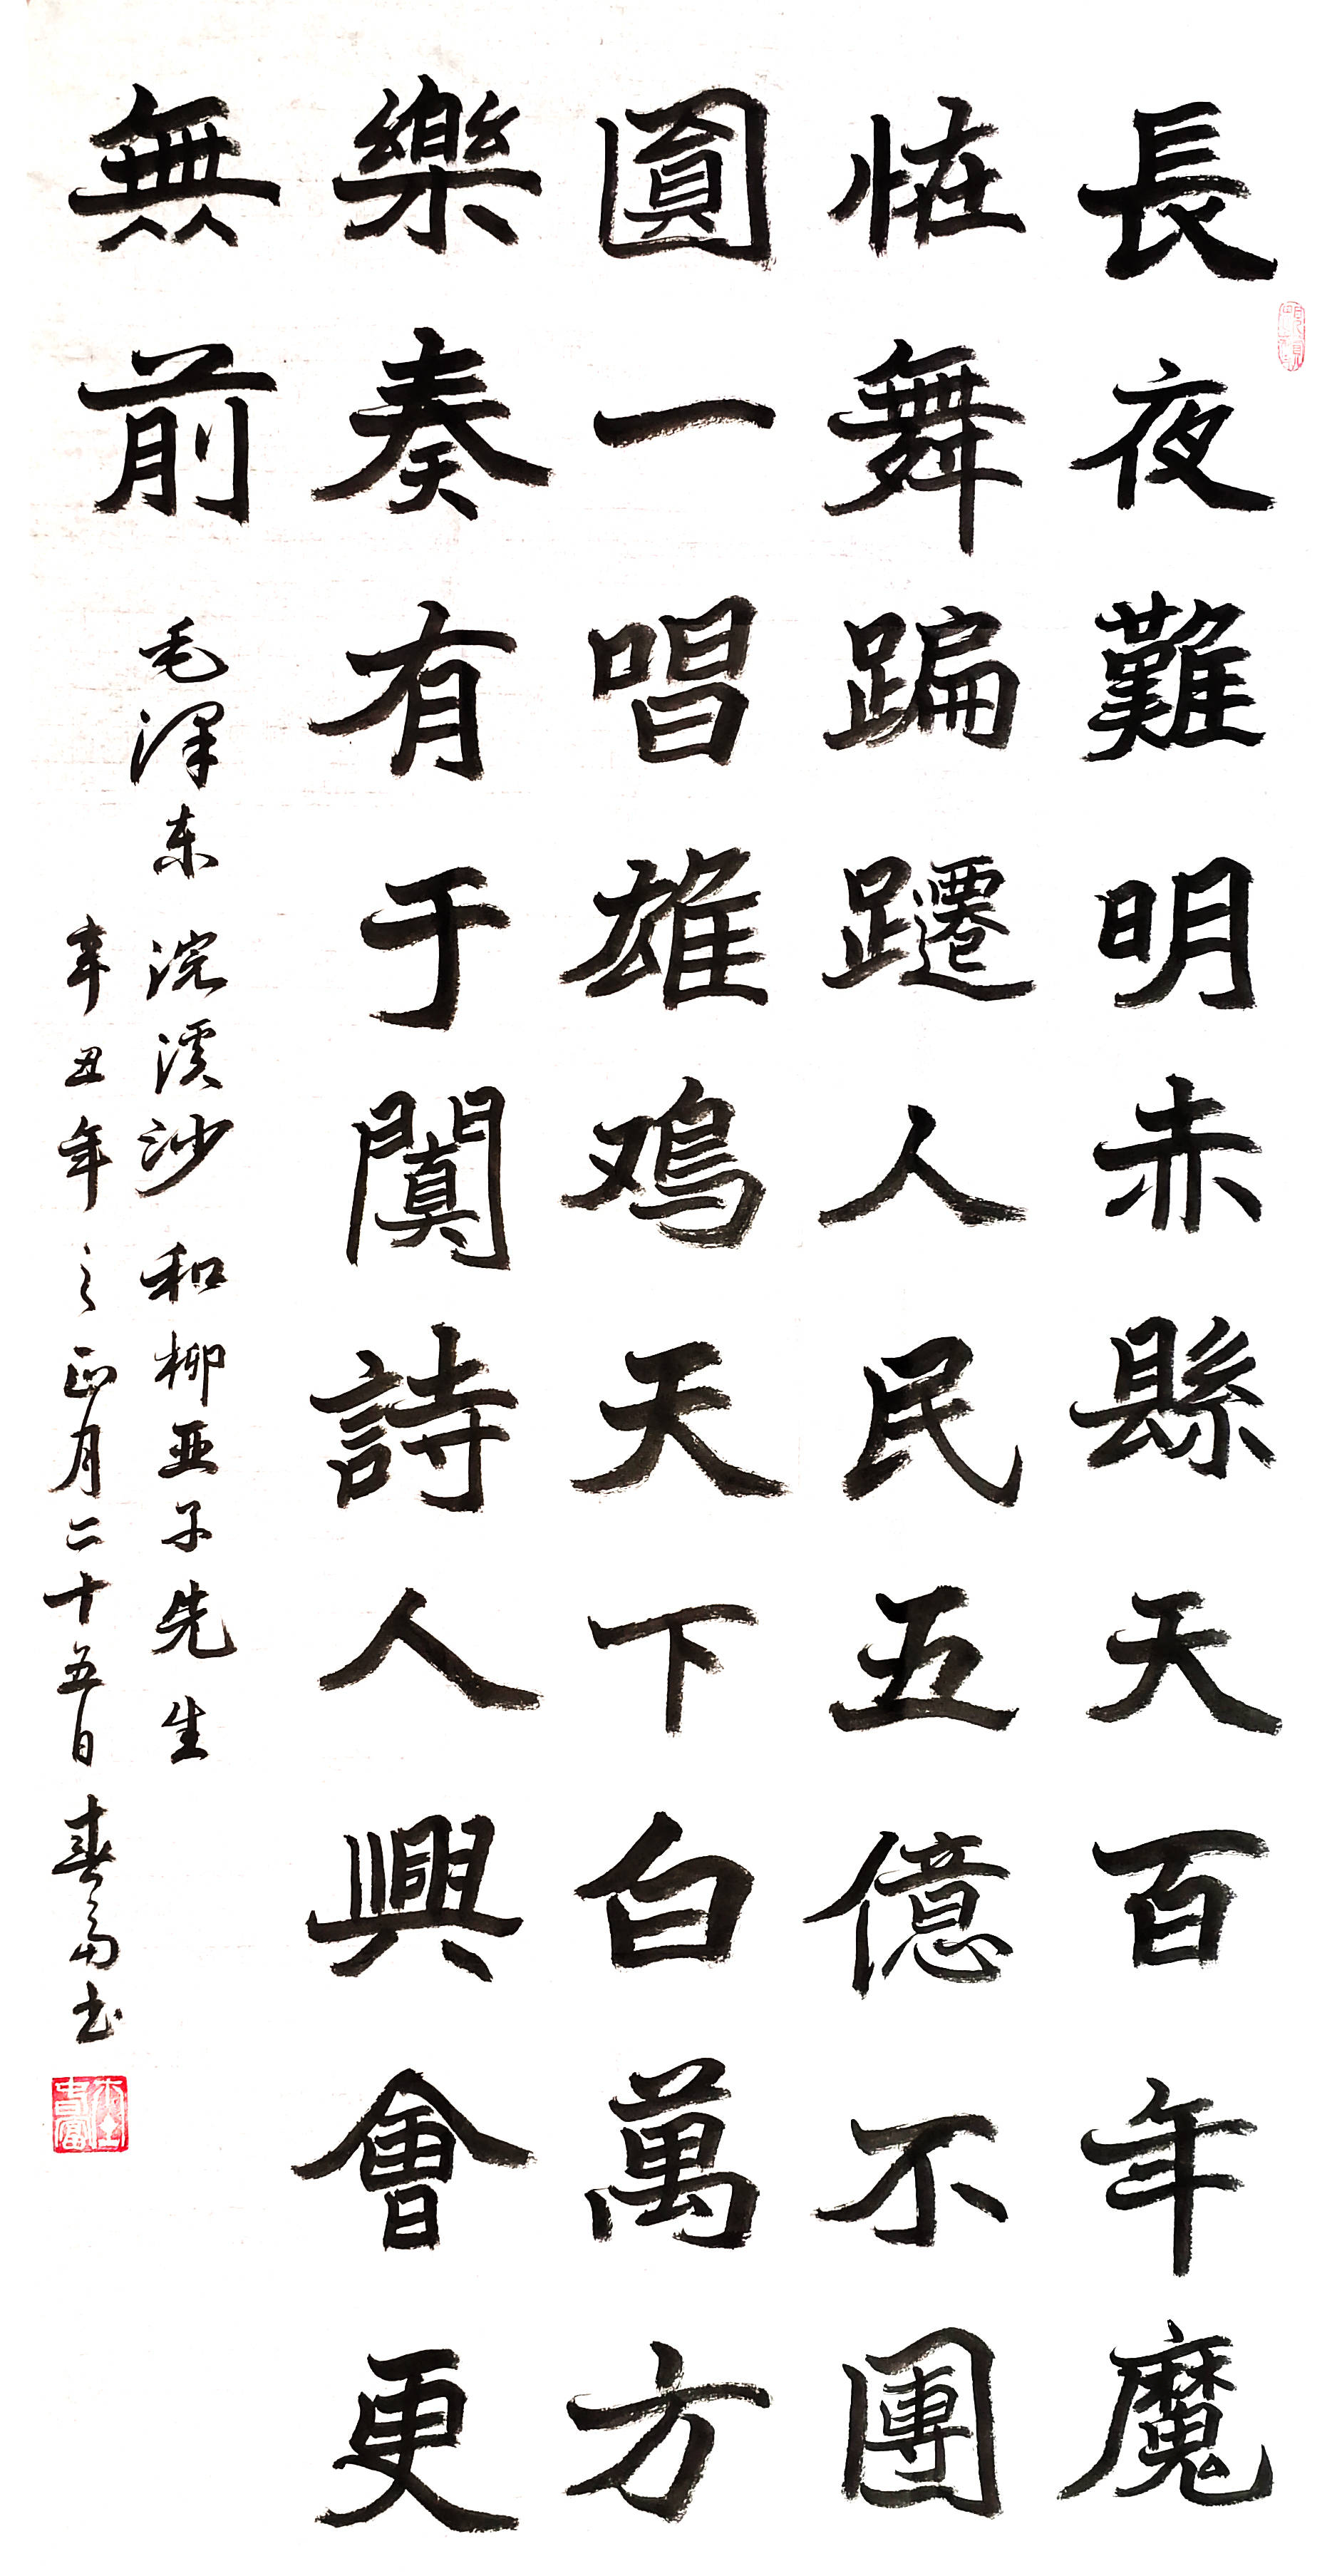 長夜難明赤縣天百年魔
恠舞蹁躚人民五億不團
圓一唱雄鸡天下白萬方
樂奏有于闐詩人興會更
無前
毛泽东 浣溪沙 和柳亚子先生
辛丑年之正月二十五日 春富书